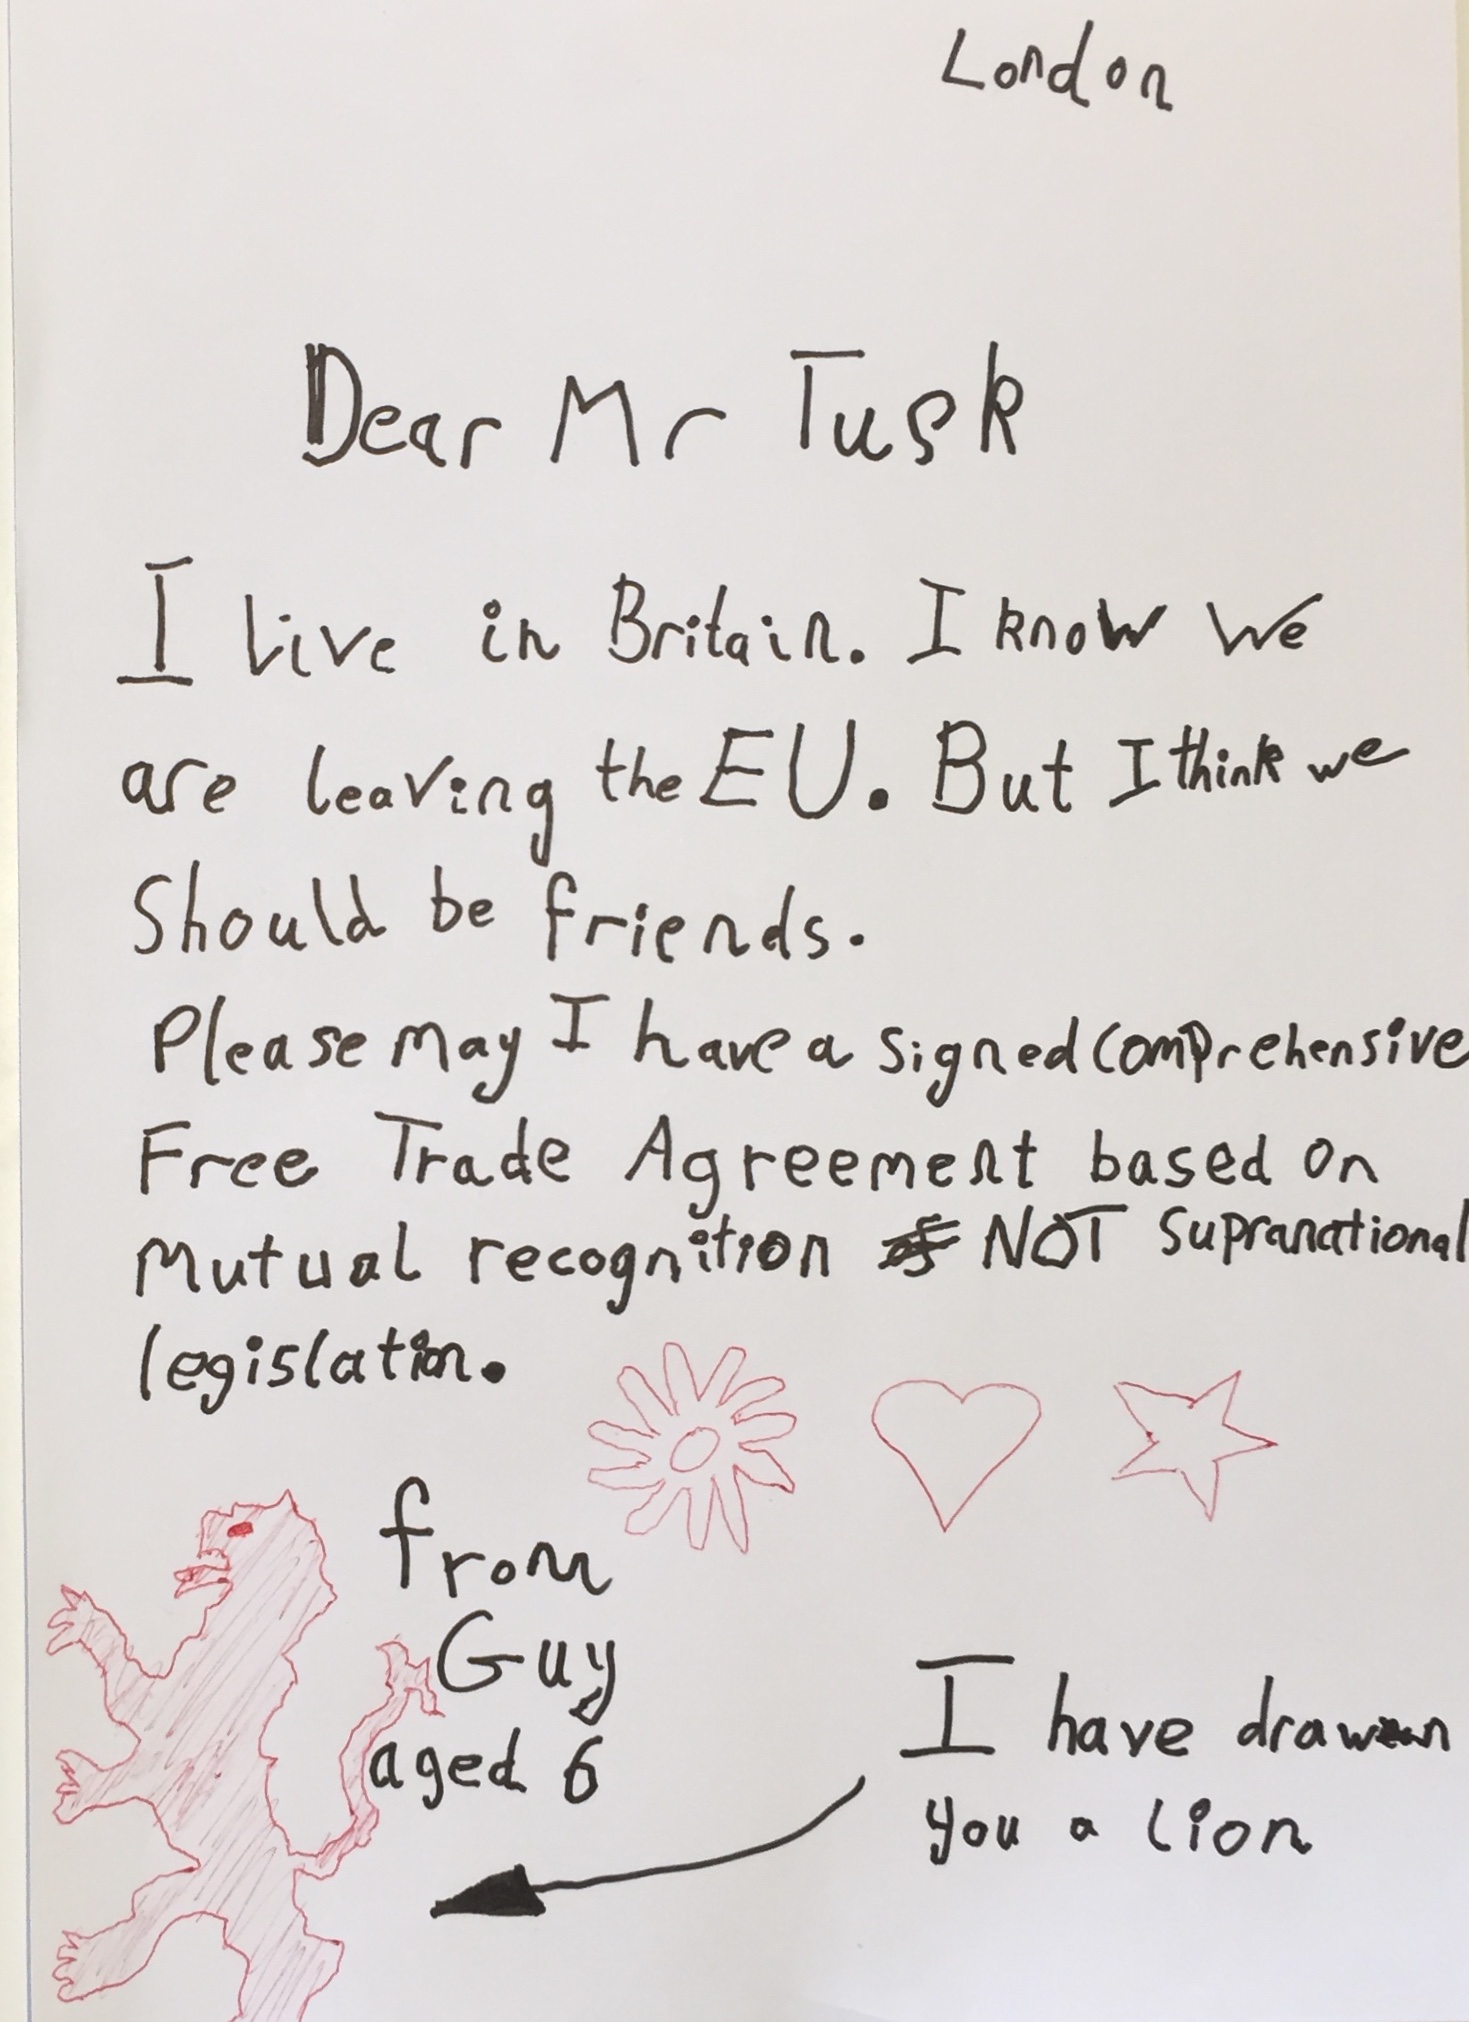 London
Dear Mr Tusk
I live in Britain. I know we
are leaving the EU. But I think we
Should be friends.
Please may I have a signed comprehensive
Free Trade Agreement based on
Mutual recognition NOT supranational
legislation.
from
Guy
aged 6
I have drawn
you a lion